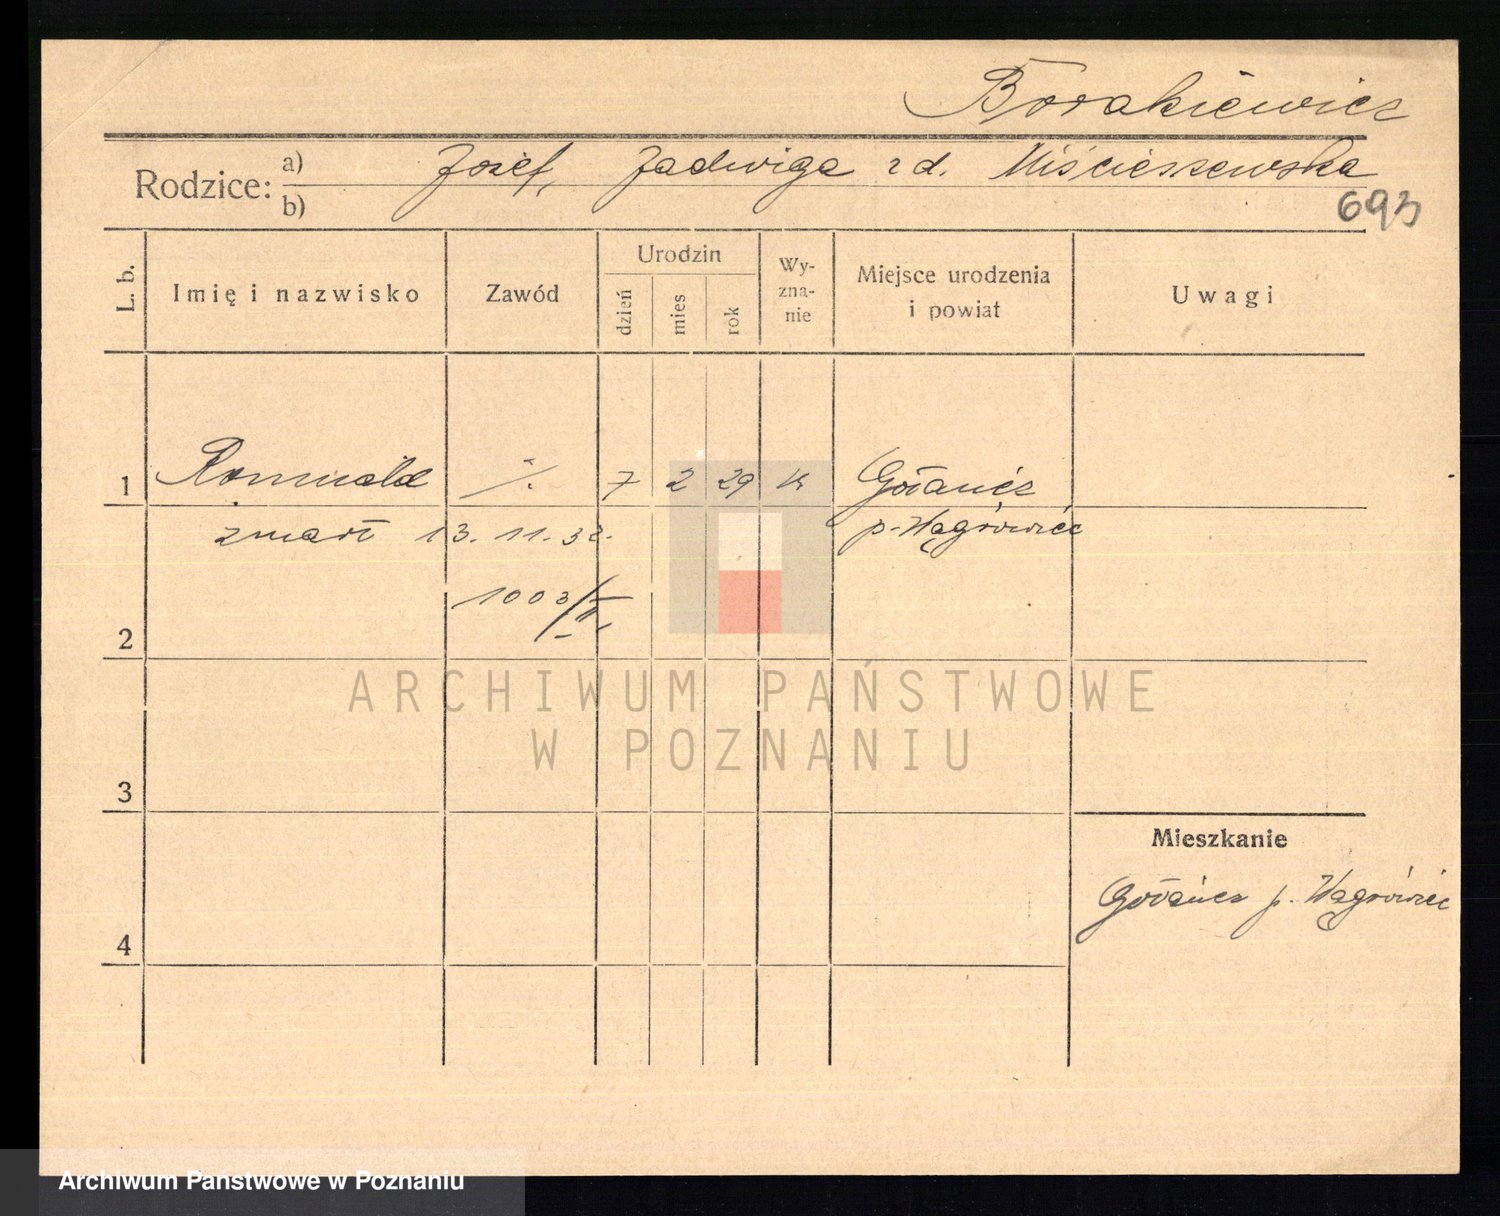 Borakiewicz
Rodzice: a) b) Józef, Jadwiga z d. Miścieszewska
693
L. b. Imię i nazwisko Zawód Urodzin dzień mies rok Wy-zna-nie Miejsce urodzenia i powiat Uwagi
1 Romuald ·/. 7 2 29 k Gołańcz
zmarł 13. 11. 32. p. Wągrówiec
1003/II
2
ARCHIWUM PAŃSTWOWE
W POZNANIU
3
Mieszkanie
Gołańcz p. Wągrówiec
4
Archiwum Państwowe w Poznaniu